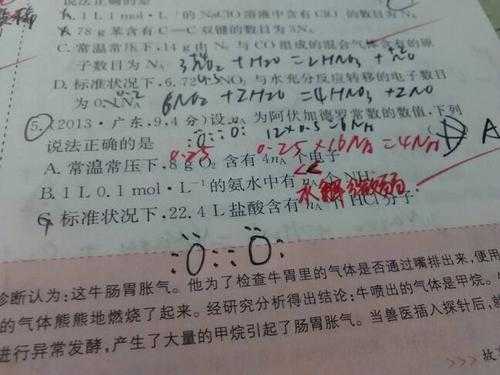 说法正确的是
A. 1 L 1 mol·L⁻¹的NaClO溶液中含有ClO⁻的数目为N
B. 78 g 苯含有C—C双键的数目为3N
C. 常温常压下,14 g由N₂与CO组成的混合气体含有的原
子数目为N
3NO₂+H₂O=2HNO₃+NO
D. 标准状况下,6.72 L NO₂与水充分反应转移的电子数目
为0.1N
0.2
6NO₂+2H₂O=4HNO₃+2NO
5.(2013·广东,9,4分)设nA为阿伏加德罗常数的数值,下列
说法正确的是
12×0.5=6NA
A
0.25
0.25×16NA=4NA
A. 常温常压下,8 g O₂含有4nA个电子
B. 1 L 0.1 mol·L⁻¹的氨水中有
水解微弱
C. 标准状况下,22.4 L盐酸含有nA个HCl分子
诊断认为:这牛肠胃胀气。他为了检查牛胃里的气体是否通过嘴排出来,便用
的气体熊熊地燃烧了起来。经研究分析得出结论:牛喷出的气体是甲烷。
进行异常发酵,产生了大量的甲烷引起了肠胃胀气。当兽医插入探针后,
>>>故